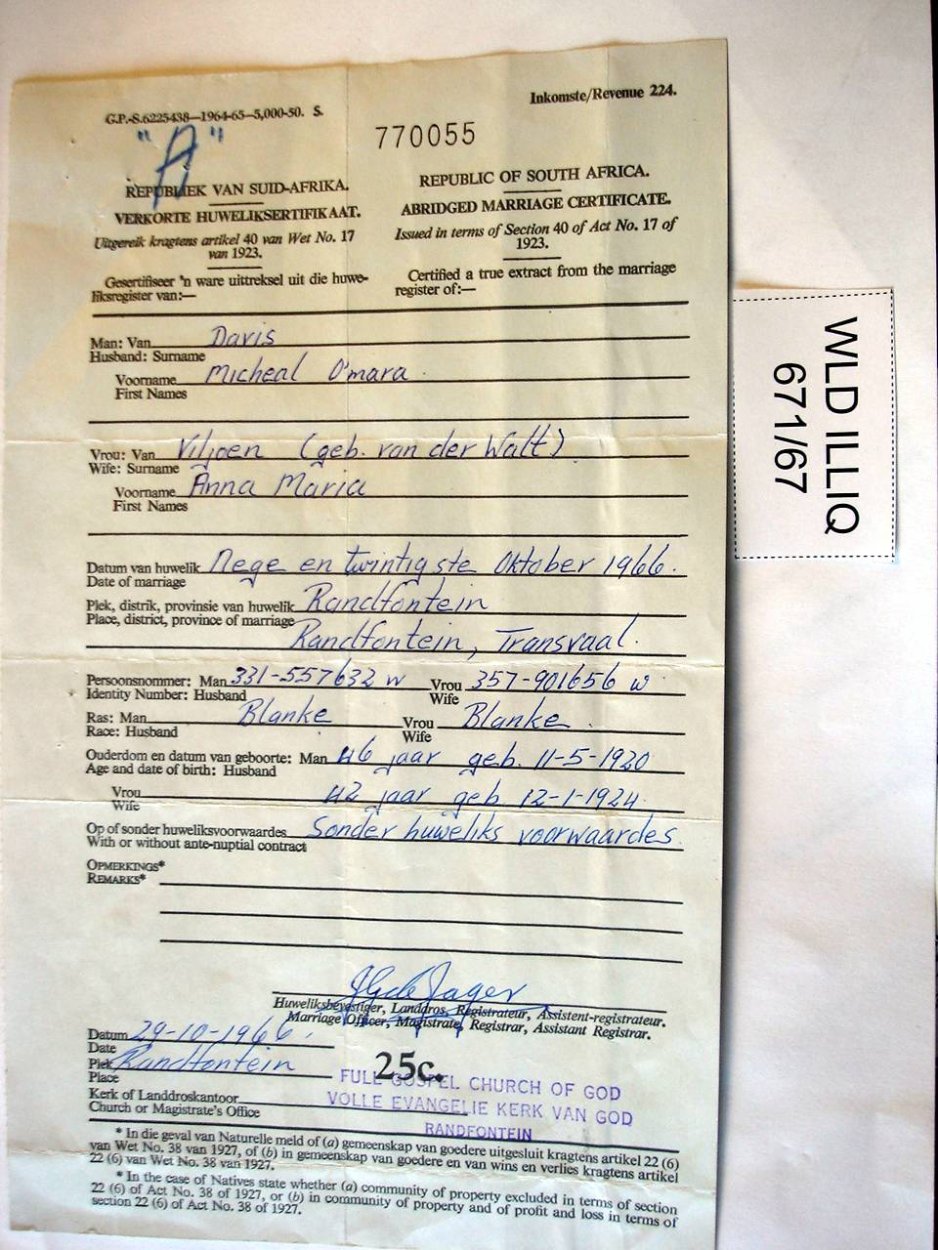 G.P.-S.6225438—1964-65—5,000-50. S.
Inkomste/Revenue 224.
"A"
770055
REPUBLIEK VAN SUID-AFRIKA.
VERKORTE HUWELIKSERTIFIKAAT.
Uitgereik kragtens artikel 40 van Wet No. 17
van 1923.
Gesertifiseer 'n ware uittreksel uit die huwe-
liksregister van:—
REPUBLIC OF SOUTH AFRICA.
ABRIDGED MARRIAGE CERTIFICATE.
Issued in terms of Section 40 of Act No. 17 of
1923.
Certified a true extract from the marriage
register of:—
Man: Van Davis
Husband: Surname
Voorname Micheal O'mara
First Names
Vrou: Van Viljoen (geb. van der Walt)
Wife: Surname
Voorname Anna Maria
First Names
Datum van huwelik Nege en twintigste Oktober 1966.
Date of marriage
Plek, distrik, provinsie van huwelik Randfontein
Place, district, province of marriage
Randfontein, Transvaal.
Persoonsnommer: Man 331-557632 W Vrou 357-901656 W
Identity Number: Husband Wife
Ras: Man Blanke Vrou Blanke
Race: Husband Wife
Ouderdom en datum van geboorte: Man 46 jaar geb. 11-5-1920
Age and date of birth: Husband
Vrou 42 jaar geb 12-1-1924.
Wife
Op of sonder huweliksvoorwaardes Sonder huweliks voorwaardes.
With or without ante-nuptial contract
OPMERKINGS*
REMARKS*
de Jager
Huweliksbevestiger, Landdros, Registrateur, Assistent-registrateur.
Marriage Officer, Magistrate, Registrar, Assistant Registrar.
Datum 29-10-1966.
Date
Plek Randfontein
Place
25c.
Kerk of Landdroskantoor
Church or Magistrate's Office
FULL GOSPEL CHURCH OF GOD
VOLLE EVANGELIE KERK VAN GOD
RANDFONTEIN
* In die geval van Naturelle meld of (a) gemeenskap van goedere uitgesluit kragtens artikel 22 (6)
van Wet No. 38 van 1927, of (b) in gemeenskap van goedere en van wins en verlies kragtens artikel
22 (6) van Wet No. 38 van 1927.
* In the case of Natives state whether (a) community of property excluded in terms of section
22 (6) of Act No. 38 of 1927, or (b) in community of property and of profit and loss in terms of
section 22 (6) of Act No. 38 of 1927.
WLD ILLIQ
671/67